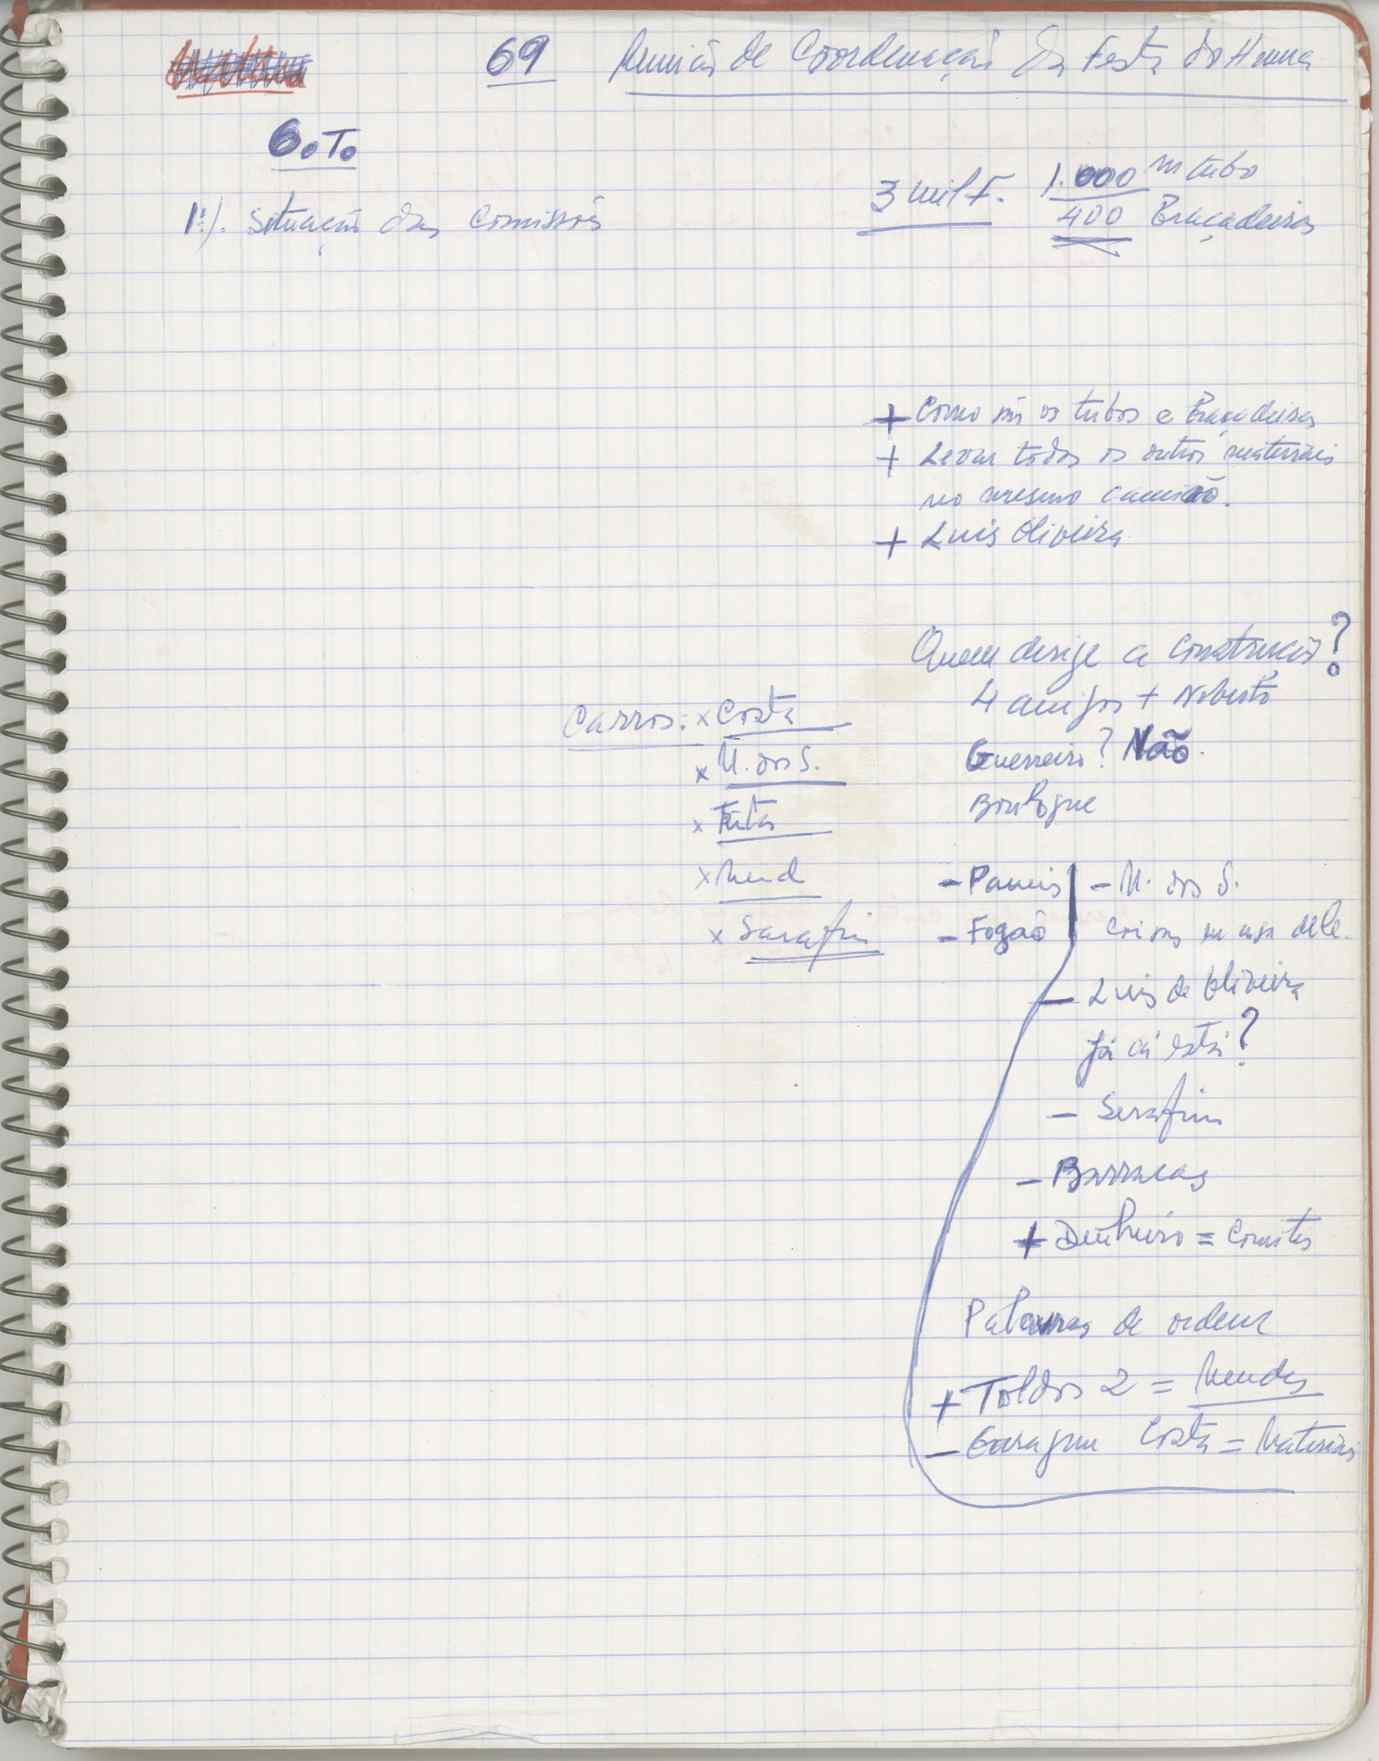 69 Reunião de Coordenação da Festa do Huma
O.T.
1º). Situação das Comissões
3 mil F. 1.000 m tubo
400 Braçadeiras
+ Como vão os tubos e Braçadeiras
+ Levar todos os outros materiais
no mesmo camião.
+ Luis Oliveira
Quem dirige a construção?
4 amigos + Noberto
Guerreiro? Não.
Boulogne
Carros: x Costa
x M. dos S.
x
x Mend
x Sarafim
- Paneis - M. dos S.
- Fogão Coisas em casa dele.
- Luis de Oliveira
já cá está?
- Serafim
- Barracas
+ Dinheiro = Comités
Palavras de ordem
+ Toldos 2 = Mendes
- Garagem Costa = Materiais